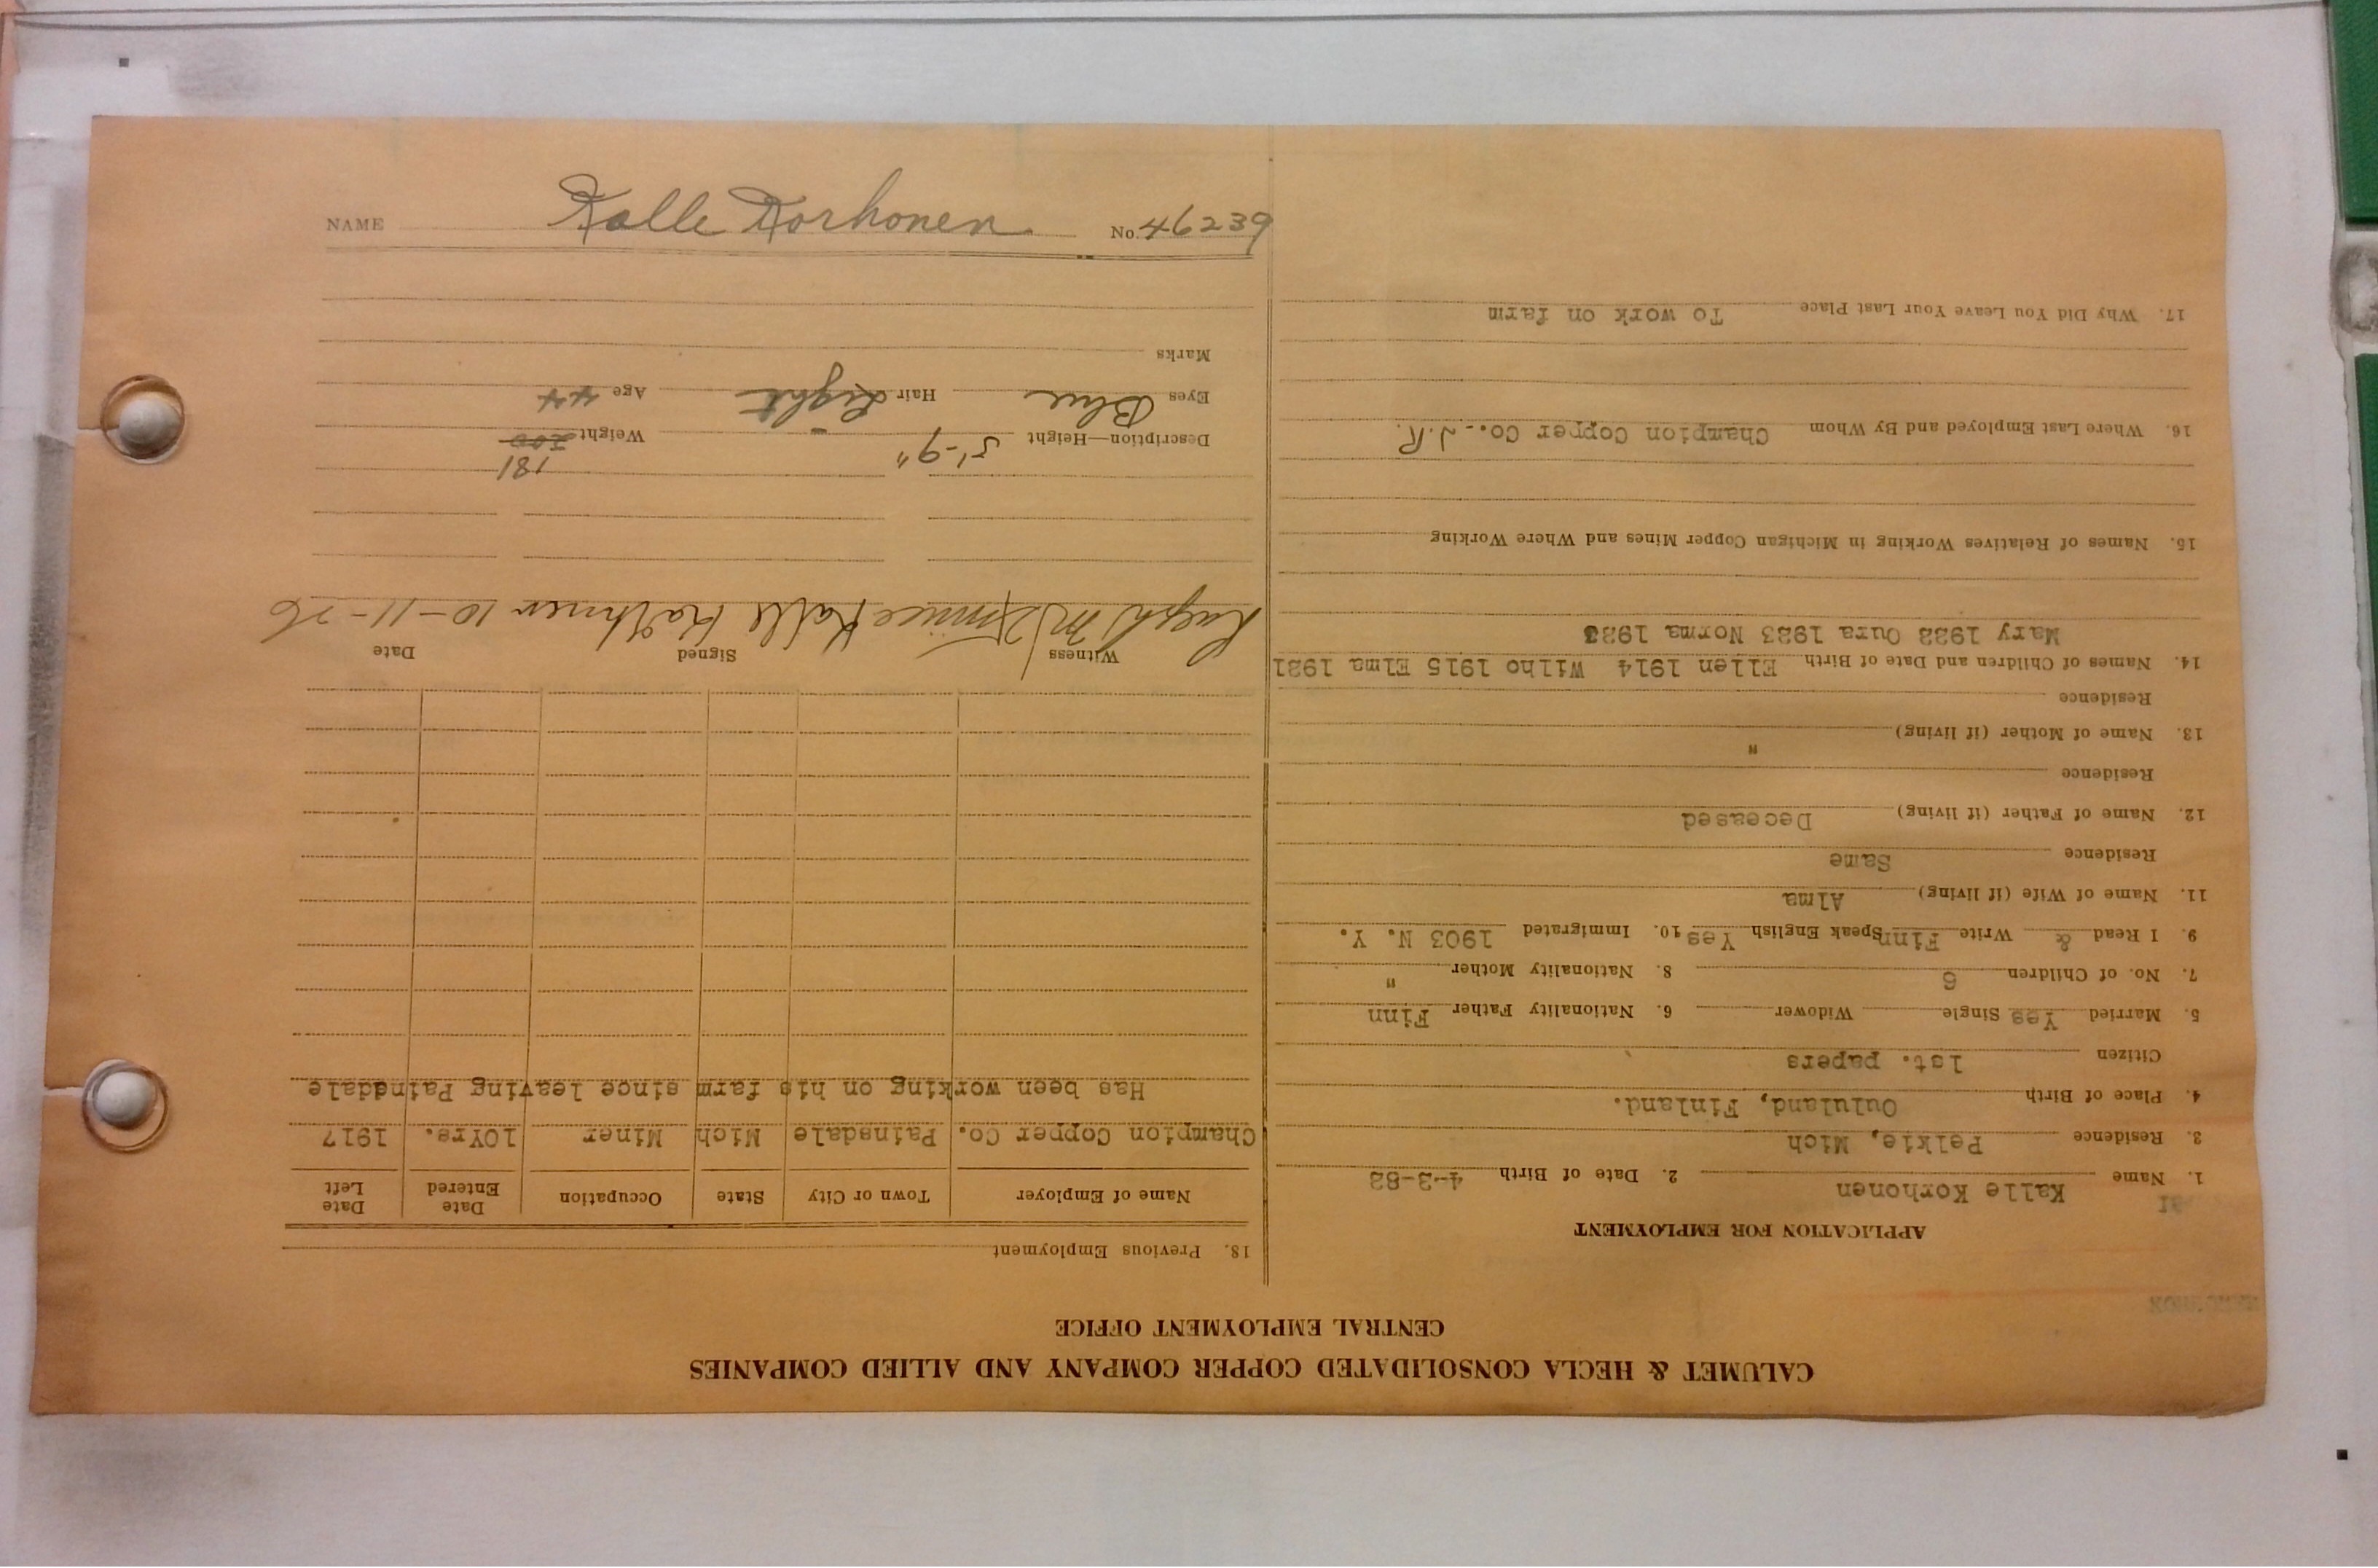 CALUMET & HECLA CONSOLIDATED COPPER COMPANY AND ALLIED COMPANIES
CENTRAL EMPLOYMENT OFFICE
APPLICATION FOR EMPLOYMENT
1. Name Kalle Korhonen 2. Date of Birth 4-3-82
3. Residence Pelkie, Mich
4. Place of Birth Oululand, Finland.
Citizen 1st. papers
5. Married Yes Single Widower 6. Nationality Father Finn
7. No. of Children 6 8. Nationality Mother "
9. I Read & Write Finn Speak English Yes 10. Immigrated 1903 N. Y.
11. Name of Wife (if living) Alma
Residence Same
12. Name of Father (if living) Deceased
Residence
13. Name of Mother (if living) "
Residence
14. Names of Children and Date of Birth Ellen 1914 Wilho 1915 Elma 1921
Mary 1922 Oura 1923 Norma 1923
15. Names of Relatives Working in Michigan Copper Mines and Where Working
16. Where Last Employed and By Whom Champion Copper Co. - J.R.
17. Why Did You Leave Your Last Place To work on farm
18. Previous Employment
Name of Employer Town or City State Occupation Date Entered Date Left
Champion Copper Co. Painsdale Mich Miner 10Yrs. 1917
Has been working on his farm since leaving Painsdale
Witness Signed Date
Ralph Kalle 10-11-26
181
Description—Height 5'-9" Weight 200
Eyes Blue Hair Light Age 44
Marks
NAME Kalle Korhonen No. 46239